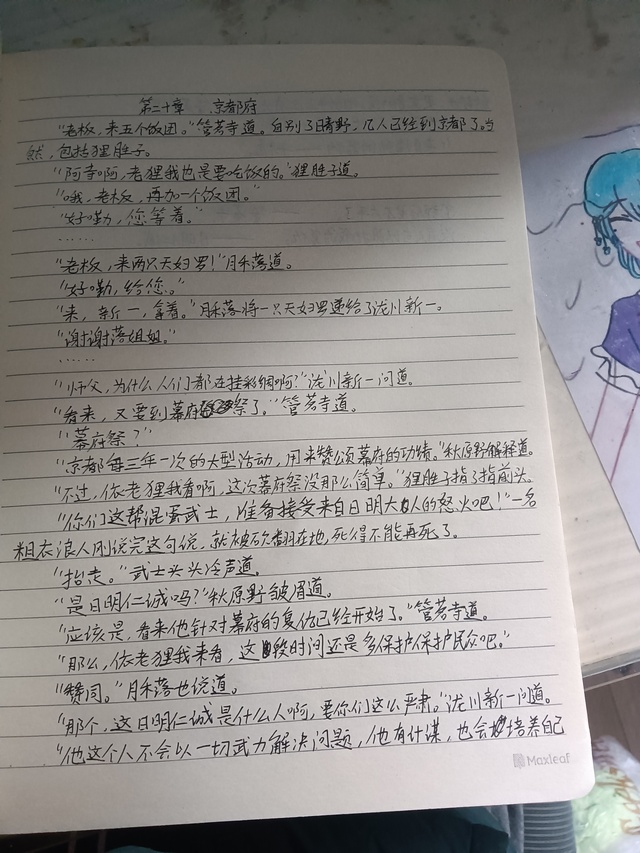 第二十章 京都府
“老板，来五个饭团。”管若寺道。自别了晴野，几人已经到京都了。当
然，包括狸胜子。
“阿寺啊，老狸我也是要吃饭的。”狸胜子道。
“哦，老板，再加一个饭团。”
“好嘞，您等着。”
……
“老板，来两只天妇罗！”月禾落道。
“好嘞，给您。”
“来，新一，拿着。”月禾落将一只天妇罗递给了泷川新一。
“谢谢落姐姐。”
……
“师父，为什么人们都在挂彩绸啊？”泷川新一问道。
“看来，又要到幕府祭了。”管若寺道。
“幕府祭？”
“京都每三年一次的大型活动，用来赞颂幕府的功绩。”秋原野解释道。
“不过，依老狸我看啊，这次幕府祭没那么简单。”狸胜子指了指前头。
“你们这帮混蛋武士，准备接受来自日明大人的怒火吧！”一名
粗衣浪人刚说完这句说，就被砍翻在地，死得不能再死了。
“抬走。”武士头头冷声道。
“是日明仁诚吗？”秋原野皱眉道。
“应该是，看来他针对幕府的复仇已经开始了。”管若寺道。
“那么，依老狸我来看，这段时间还是多保护保护民众吧。”
“赞同。”月禾落也说道。
“那个，这日明仁诚是什么人啊，要你们这么严肃。”泷川新一问道。
“他这个人不会以一切武力解决问题，他有计谋，也会培养自己
Maxleaf